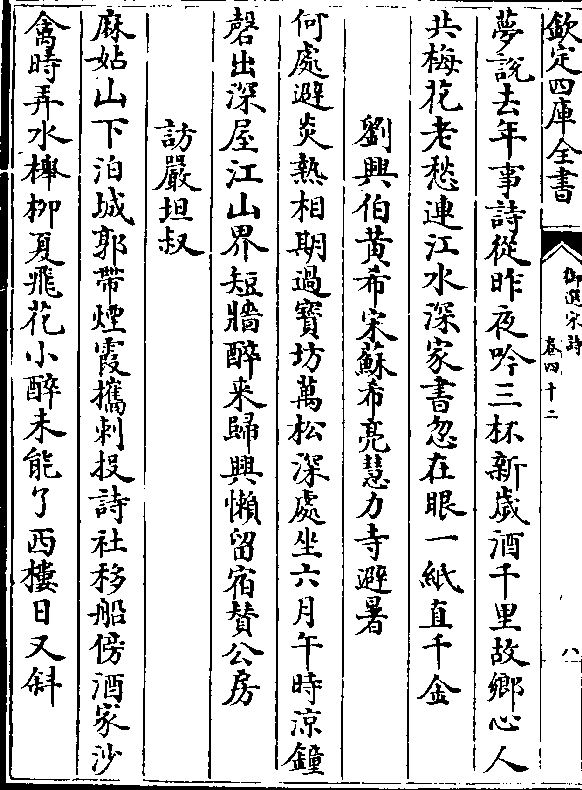 欽定四庫全書
御選宋詩
卷四十二
八
夢說去年事詩從昨夜吟三杯新歲酒千里故鄉心人
共梅花老愁連江水深家書忽在眼一紙直千金
劉興伯黃希宋蘇希亮慧力寺避暑
何處避炎熱相期過寳坊萬松深處坐六月午時涼鐘
磬出深屋江山界短牆醉来歸興懶留宿賛公房
訪嚴坦叔
麻姑山下泊城郭帶煙霞攜刺投詩社移船傍酒家沙
禽時弄水櫸栁夏飛花小醉未能了西樓日又斜